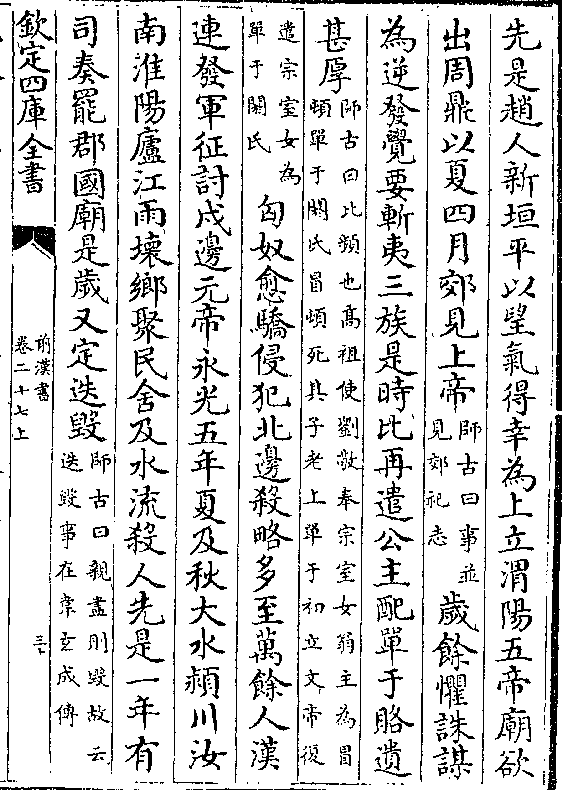 先是趙人新垣平以望氣得幸為上立渭陽五帝廟欲
出周鼎以夏四月郊見上帝師古曰事並見郊祀志歲餘懼誅謀
為逆發覺要斬夷三族是時比再遣公主配單于賂遺
甚厚師古曰比頻也髙祖使劉敬奉宗室女翁主為冒頓單于閼氏冒頓死其子老上單于初立文帝復
遣宗室女為單于閼氏匈奴愈驕侵犯北邊殺略多至萬餘人漢
連發軍征討戍邊元帝永光五年夏及秋大水潁川汝
南淮陽廬江雨壞鄉聚民舍及水流殺人先是一年有
司奏罷郡國廟是歲又定迭毀師古曰親盡則毀故云迭毀事在韋玄成傳
欽定四庫全書
前漢書
卷二十七上
三十